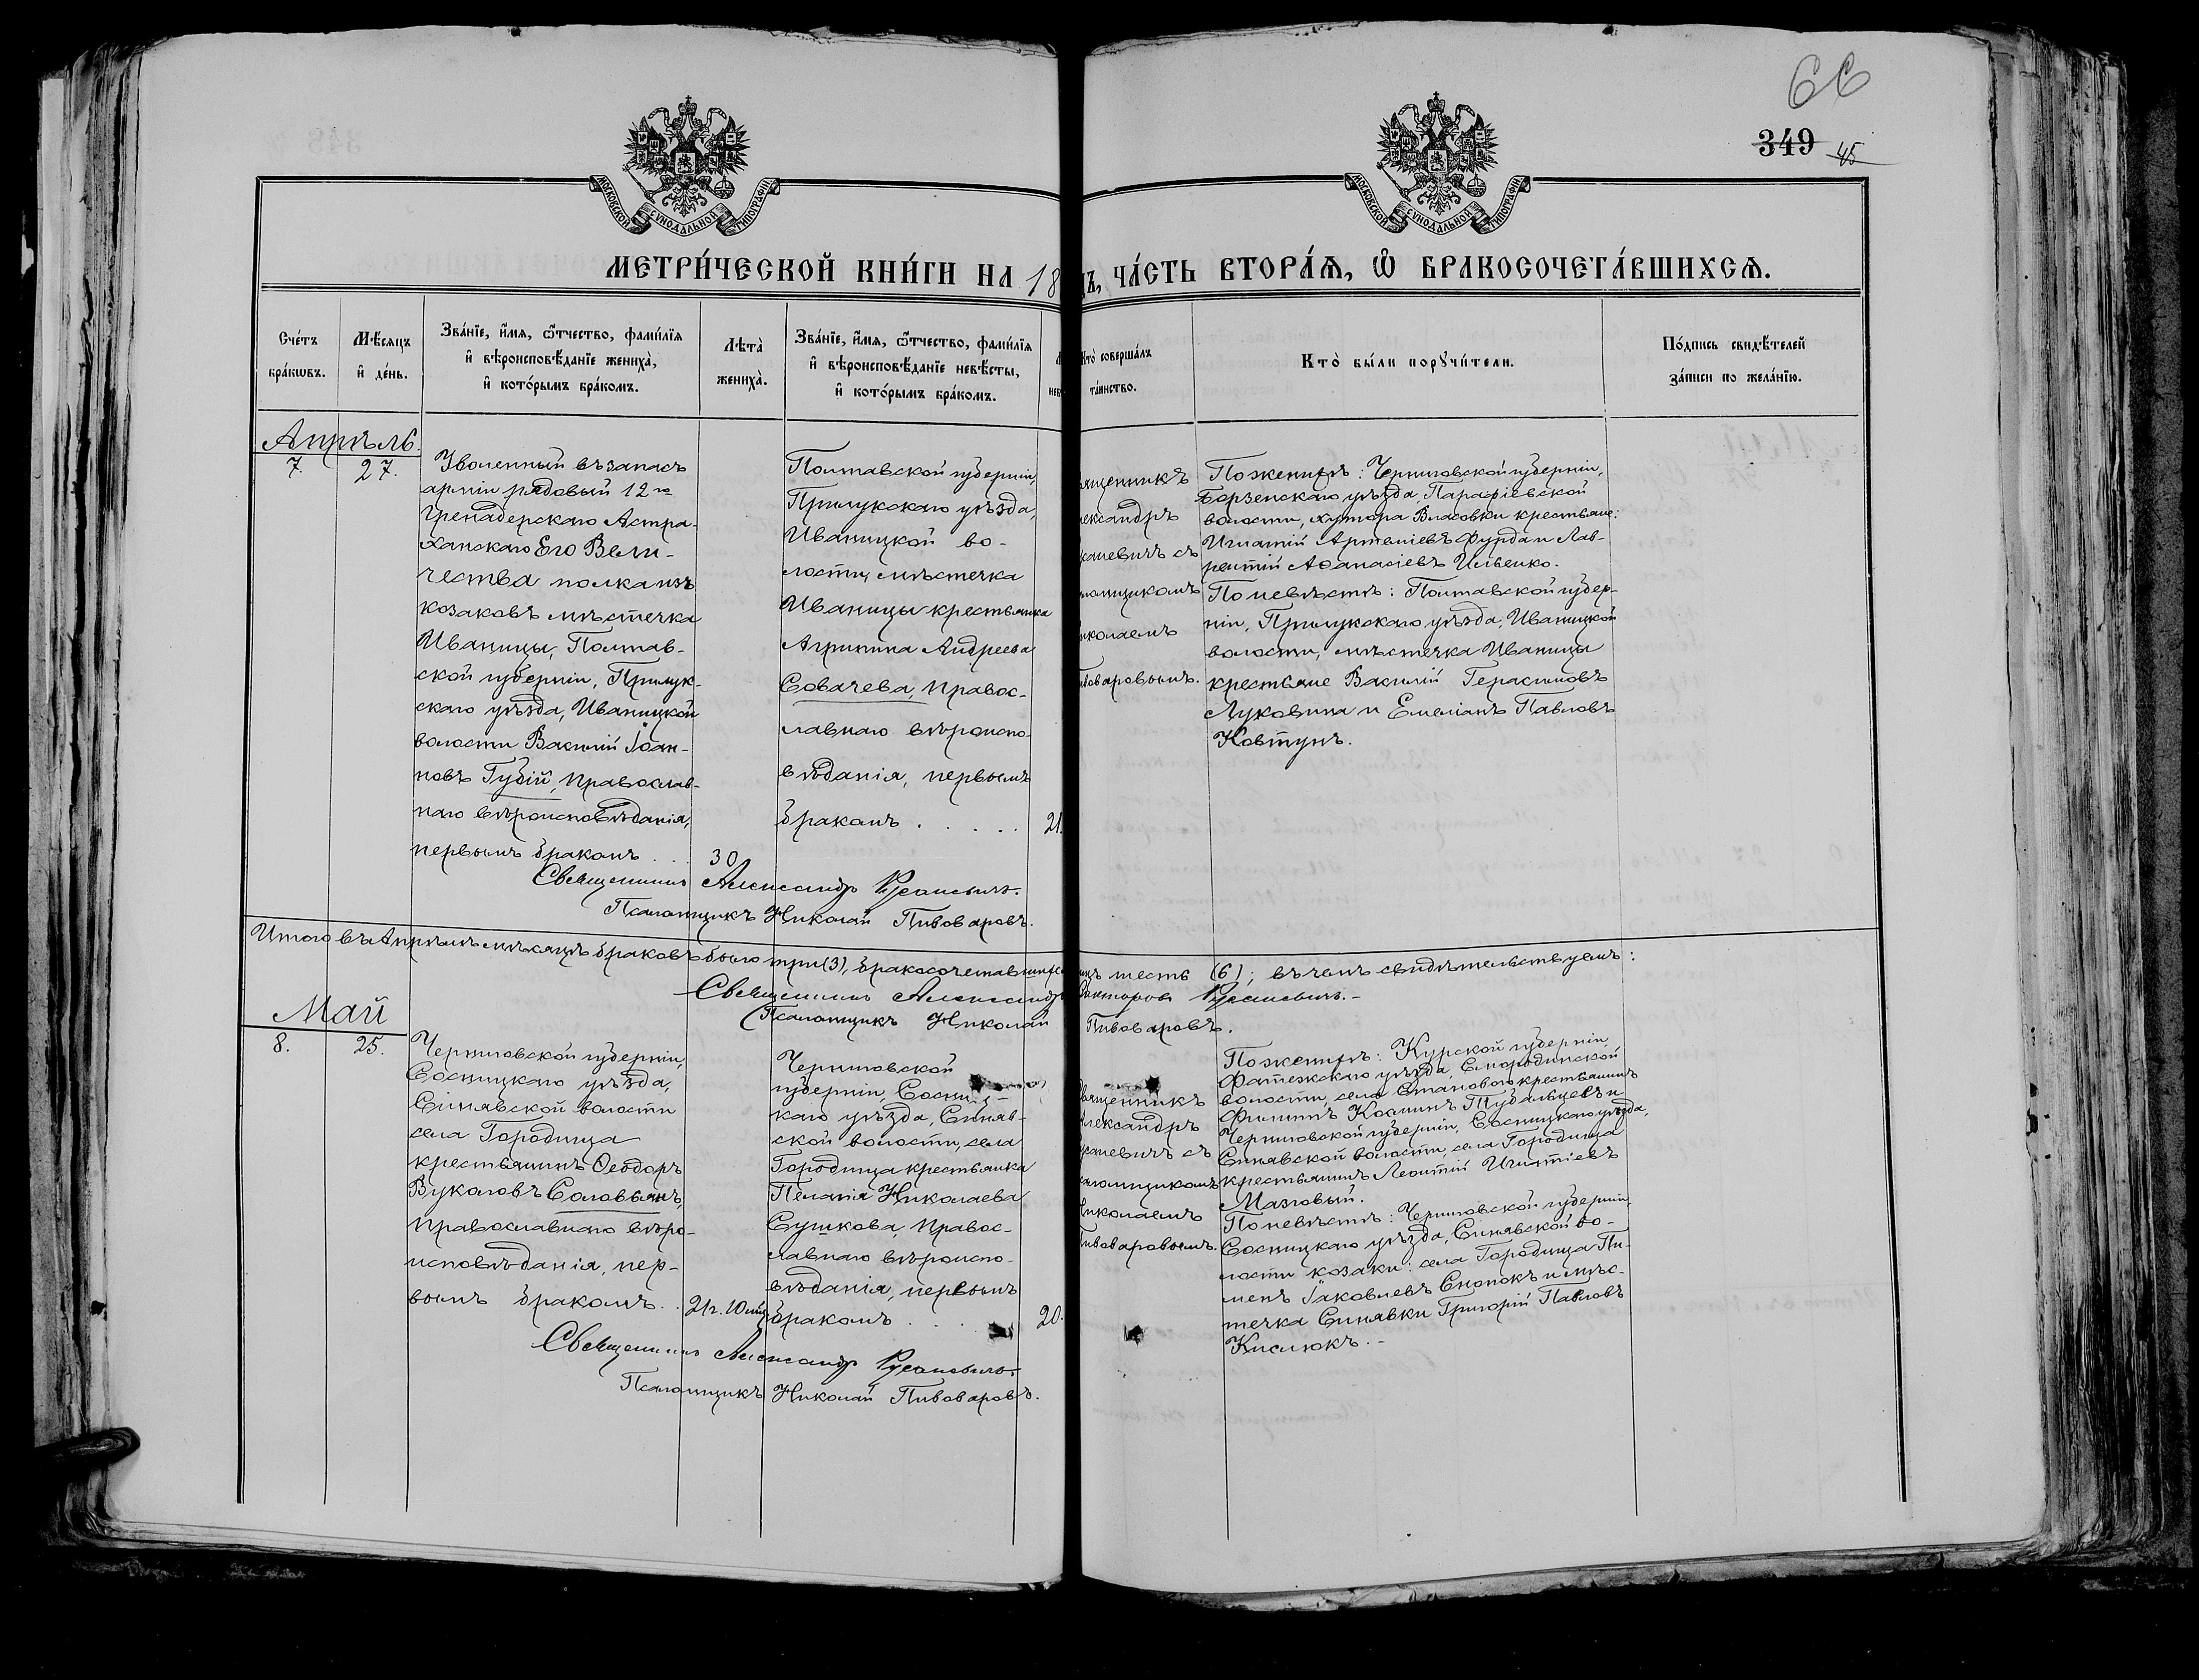 66
349 45
МОСКОВСКОЙ СѴНОДАЛЬНОЙ ТИПОГРАФІИ
МОСКОВСКОЙ СѴНОДАЛЬНОЙ ТИПОГРАФІИ
МЕТРИ́ЧЕСКОЙ КНИ́ГИ НА 18
ЧА́СТЬ ВТОРА́Ѧ, Ѽ БРАКОСОЧЕТА́ВШИХСѦ.
Сче́тъ
бра́кѡвъ.
Мѣ́сяцъ
и҆ де́нь.
Зва́нїе, и҆́мя, ѻ҆́тчество, фами́лїя
и҆ вѣроисповѣ́данїе жениха̀,
и҆ кото́рымъ бра́комъ.
Лѣта̀
жениха̀.
Зва́нїе, и҆́мя, ѻ҆́тчество, фами́лїя
и҆ вѣроисповѣ́данїе невѣ́сты,
и҆ кото́рымъ бра́комъ.
Кто̀ соверша́лъ
та́инство.
Кто̀ бы́ли порꙋчи́тели.
По́дпись свидѣ́телей
за́писи по жела́нїю.
Апрѣль.
7.
27.
Уволенный въ запасъ
арміи рядовый 12го
Гренадерскаго Астра-
ханскаго Его Вели-
чества полка изъ
козаковъ мѣстечка
Иваницы, Полтав-
ской губерніи, Прилук-
скаго уѣзда, Иваницкой
волости Василій Іоан-
новъ Губій, православ-
наго вѣроисповѣданія,
первымъ бракомъ . . .
30
Полтавской губерніи,
Прилукскаго уѣзда,
Иваницкой во-
лости, мѣстечка
Иваницы крестьянка
Агрипина Андреева
Совачева, правос-
лавнаго вѣроиспо-
вѣданія, первымъ
бракомъ . . . . .
21.
ященникъ
лександръ
саневичъ съ
ломщикомъ
иколаемъ
ивоваровымъ.
По женихѣ: Черниговской губерніи,
Борзенскаго уѣзда, Парафіевской
волости, хутора Власовки крестьяне:
Игнатій Артеміевъ Фурда и Лав-
рентій Аѳанасіевъ Ильенко.
По невѣстѣ: Полтавской губер-
ніи, Прилукскаго уѣзда, Иваницкой
волости, мѣстечка Иваницы
крестьяне Василій Герасимовъ
Луковина и Емеліанъ Павловъ
Ковтунъ.
Священникъ Александръ Русаневичъ.
Псаломщикъ Николай Пивоваровъ.
Итого въ Апрѣлѣ мѣсяцѣ браковъ было три (3), бракосочетавшихся
лицъ шесть (6); въ чемъ свидѣтельствуемъ:
Священникъ Александръ Викторовъ Русаневичъ.-
Псаломщикъ Николай Пивоваровъ.
Май
8.
25.
Черниговской губерніи,
Сосницкаго уѣзда,
Синявской волости
села Городища
крестьянинъ Ѳеодоръ
Вуколовъ Соловьянъ,
православнаго вѣро-
исповѣданія, пер-
вымъ бракомъ. .
21г. 10 мѣс.
Черниговской
губерніи, Сосниц-
каго уѣзда, Синяв-
ской волости, села
Городища крестьянка
Пелагія Николаева
Сушкова, правос-
лавнаго вѣроиспо-
вѣданія, первымъ
бракомъ . . .
20.
вященникъ
Александръ
усаневичъ съ
саломщикомъ
Николаемъ
Пивоваровымъ.
По женихѣ: Курской губерніи,
Фатежскаго уѣзда, Смородинской
волости, села Станового крестьянинъ
Филиппъ Косминъ Тубальцевъ и
Черниговской губерніи, Сосницкаго уѣзда,
Синявской волости, села Городища
крестьянинъ Леонтій Игнатіевъ
Мазговый.
По невѣстѣ: Черниговской губерніи,
Сосницкаго уѣзда, Синявской во-
лости козаки: села Городища Пи-
менъ Іаковлевъ Снопокъ и мѣс-
течка Синявки Григорій Павловъ
Кислюкъ. -
Священникъ Александръ Русаневичъ.
Псаломщикъ Николай Пивоваровъ.